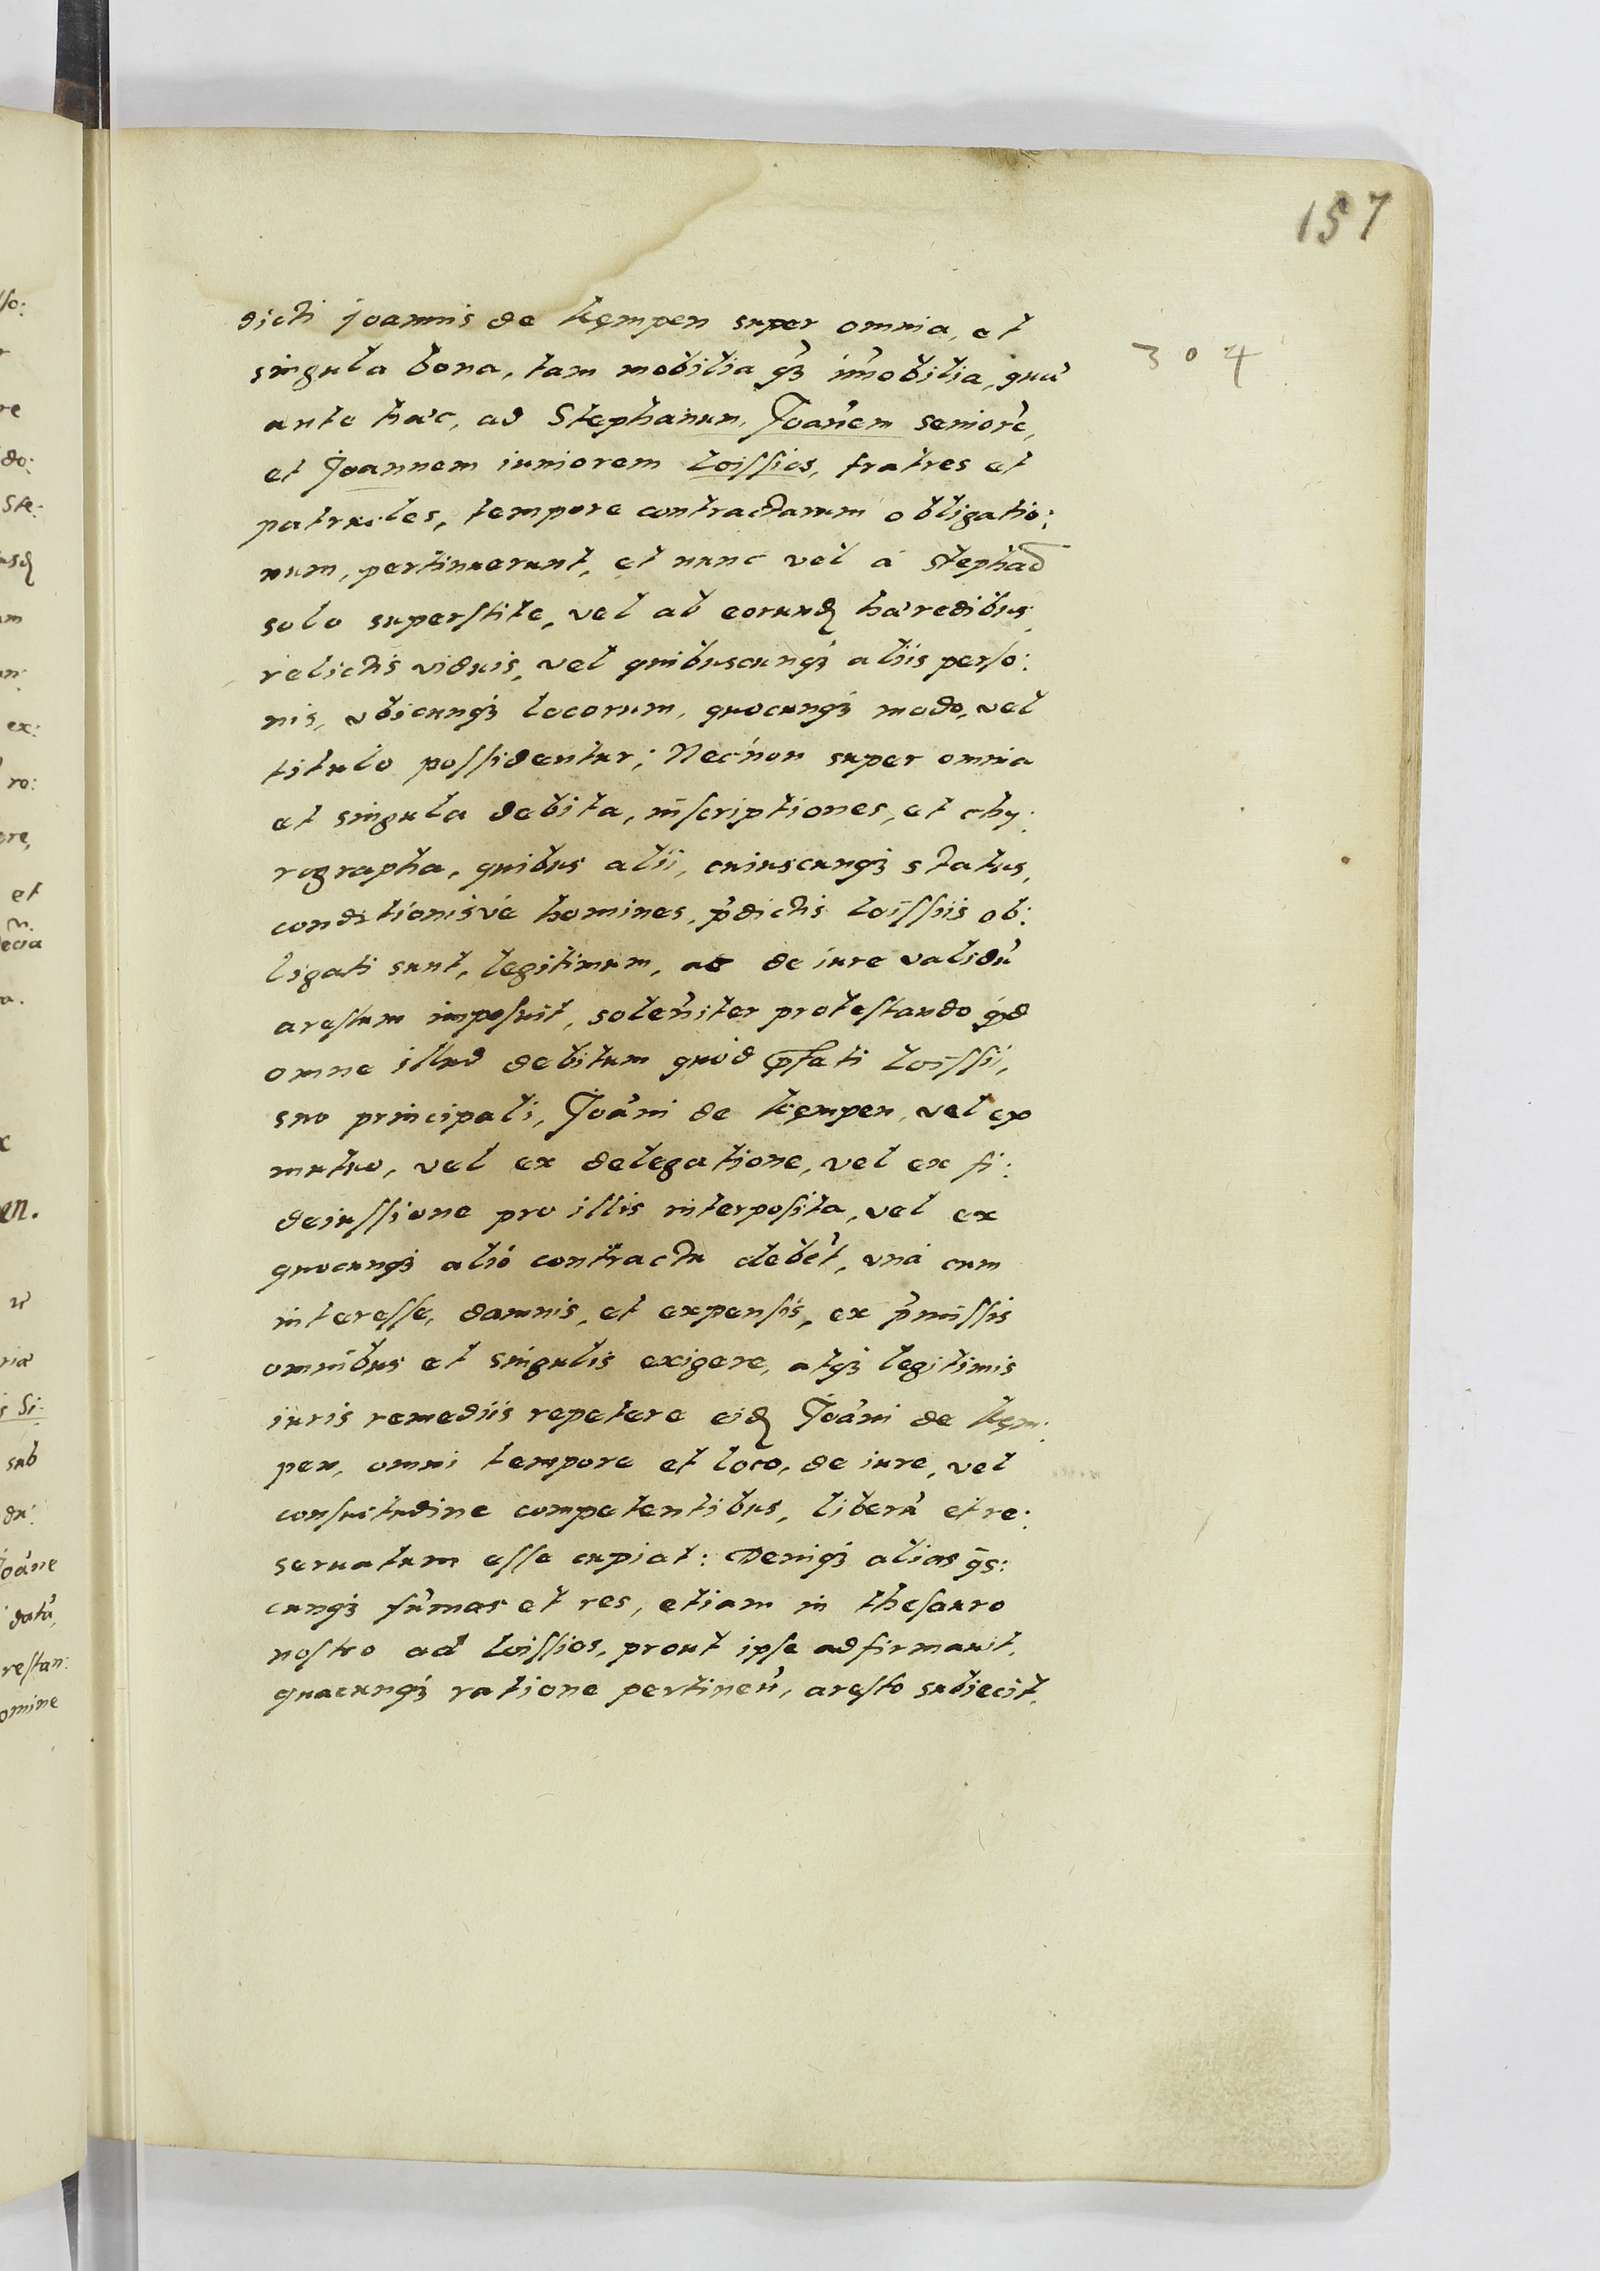 157
304
dicti Joannis de Kempen super omnia, et
singula bona, tam mobilia q̃ȝ im̃obilia, quæ
ante hàc, ad Stephanum, Joañem seniorẽ,
et Joannem iuniorem Loissios, fratres et
patrueles, tempore contractarum obligatio:
num, pertinuerunt, et nunc vel á Stephaō
solo superstite, vel ab eorunđ hæredibus,
relictis viduis, vel quibuscunqȝ aliis perso:
nis, vbicunqȝ locorum, quocunqȝ modo, vel
titulo possidentur; Necnon super omnia
et singula debita, inscriptiones, et chy:
rographa, quibus alii, cuiuscunqȝ status,
conditionisvé homines, p̃dictis Loissiis ob:
ligati sunt, legitimum, ac de iure validũ
arestum imposuit, soleñiter protestando q̃d
omne illud debitum quod p̃fati Loissii,
suo principali, Joãni de Kempen, vel ex
mutuo, vel ex delegatione, vel ex fi:
deiussione pro illis interposita, vel ex
quocunqȝ alió contractu debẽt, vná cum
interesse, damnis, et expensis, ex p̃missis
omnibus et singulis exigere, atqȝ legitimis
iuris remediis repetere eiđ Joãni de Kem:
pen, omni tempore et loco, de iure, vel
consuetudine competentibus, liberũ et re:
seruatum esse cupiat: Deniqȝ alias q̃s:
cunqȝ sum̃as et res, etiam in thesauro
nostro ad Loissios, prout ipse adfirmauit,
quacunqȝ ratione pertineñ, aresto subiecit.